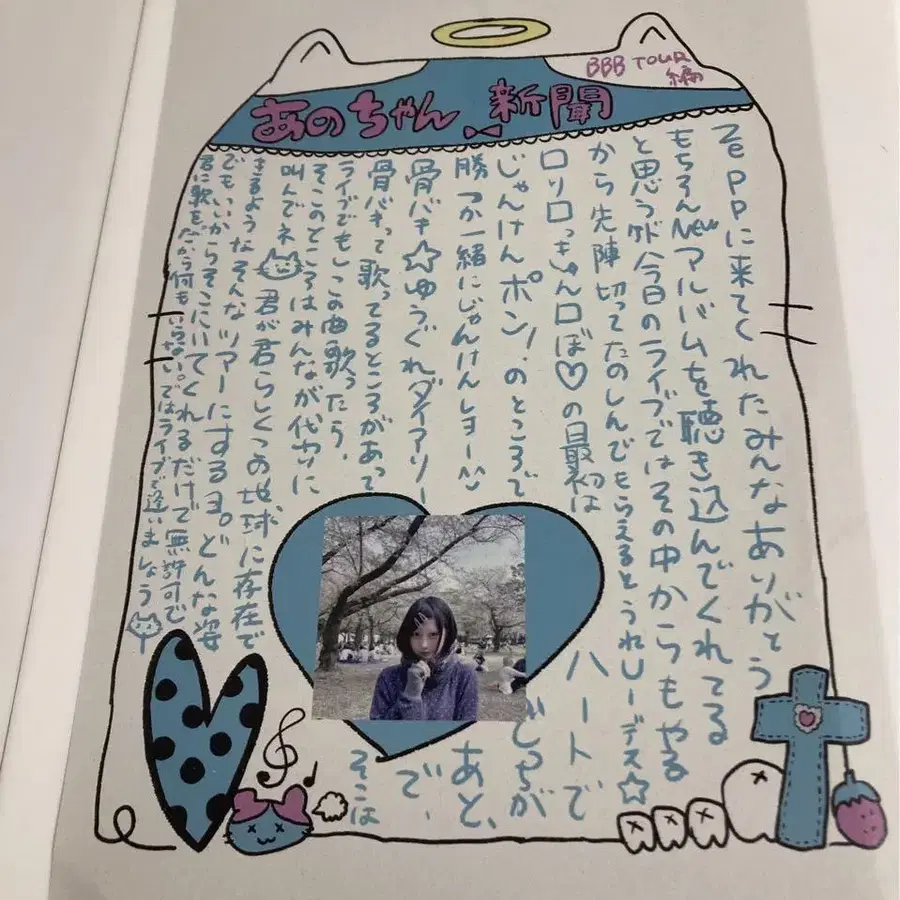 BBB TOUR
編
あのちゃん新聞
Zeppに来てくれたみんなありがとう
もちろんNewアルバムを聴き込んでくれてる
と思うケド今日のライブではその中からもやる
から先陣切ってたのしんでもらえるとうれUーデス☆
ロリロっきゅんロぼ♡の最初はハートで
じゃんけんポン!のところでどっちが
勝つか一緒にじゃんけんしヨー^^あと、
骨バキ☆ゆうぐれダイアリーで、
骨バキって歌ってるところがあってそこは
ライブでもしこの曲歌ったら、
そこのところはみんなが代わりに
叫んでネ 君が君らしくこの地球に存在で
きるようなそんなツアーにするヨ。どんな姿
でもいいからそこにいてくれるだけで無許可で
君に歌を。だから何もいらない。ではライブで逢いましょう